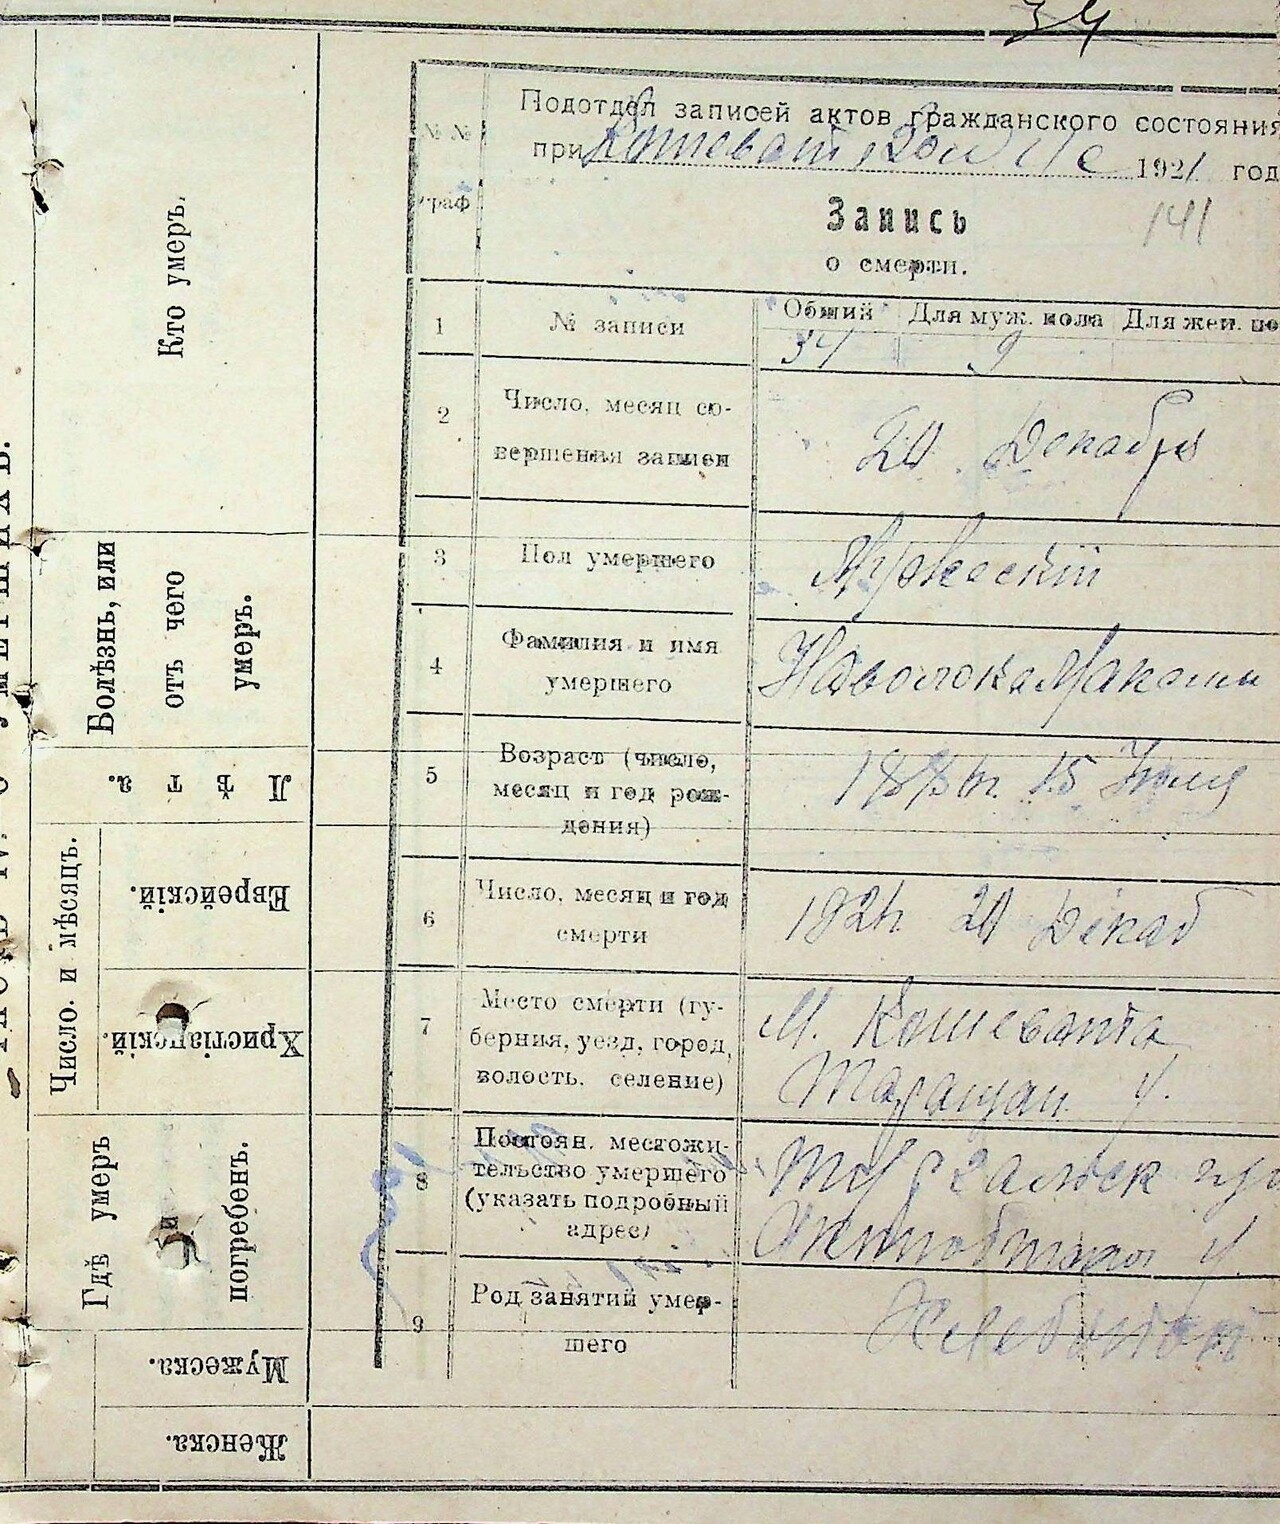 34
Подотдел записей актов гражданского состояния
№ №
при Кошеват 1921 год
граф
141
Запись
о смерти.
1 № записи Общий Для муж. пола Для жен. по
34 9
2 Число, месяц со-
вершения записи
20 Декабря
3 Пол умершего Мужеский
4 Фамилия и имя
умершего
Максим
5 Возраст (число,
месяц и год рож-
дения)
15
6 Число, месяц и год
смерти
Декаб
7 Место смерти (гу-
берния, уезд, город,
волость, селение)
М. Кошевата
Таращан у.
8 Постоян. местожи-
тельство умершего
(указать подробный
адрес)
у.
9 Род занятий умер-
шего
Кто умеръ.
Болѣзнь, или
отъ чего
умеръ.
Лѣта.
Число и мѣсяцъ.
Еврейскій.
Христіанскій.
Гдѣ умеръ
и
погребенъ.
Мужеска.
Женска.